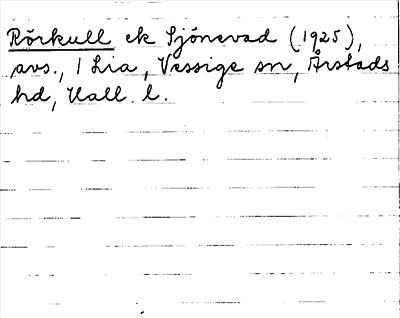 Rörkull ek Sjönevad (1925),
avs., 1 Lia, Vessige sn, Årstads
hd, Hall. l.